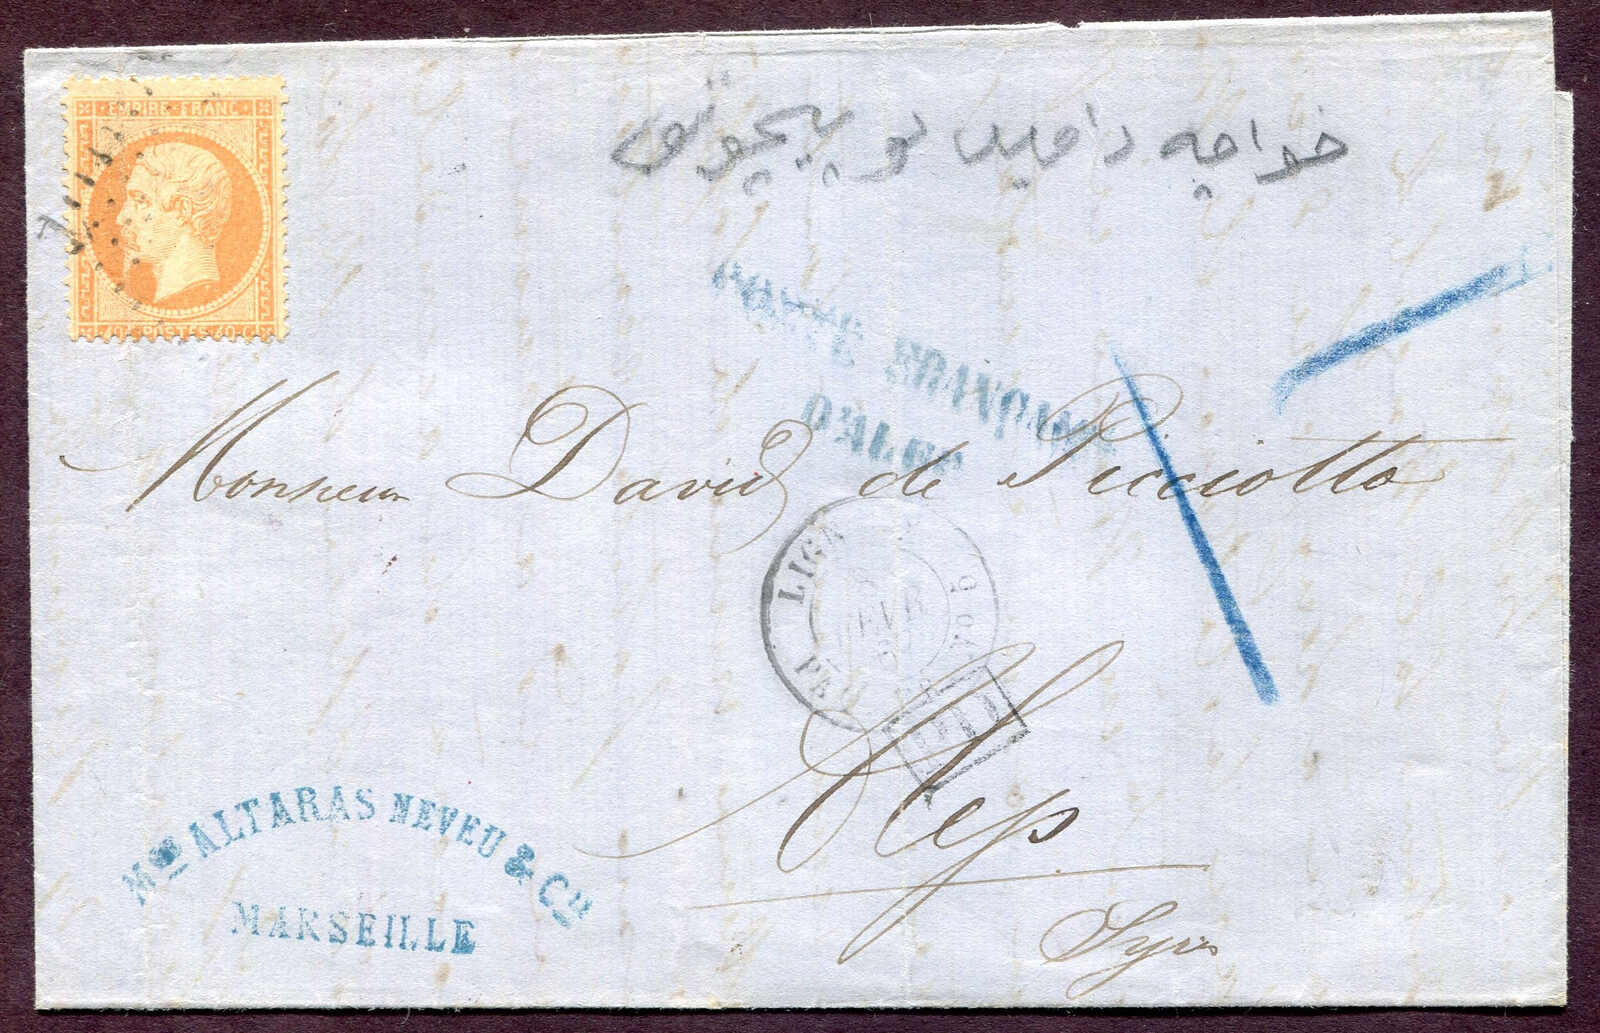 EMPIRE FRANC
40 C POSTES 40 C
خواجه دافيد دو پيچوتو
POSTE FRANÇAISE
D'ALEP
Monsieur David de Picciotto
LIGN
PAQ
FEVR
Alep
Syrie
Mce ALTARAS NEVEU & Cie
MARSEILLE